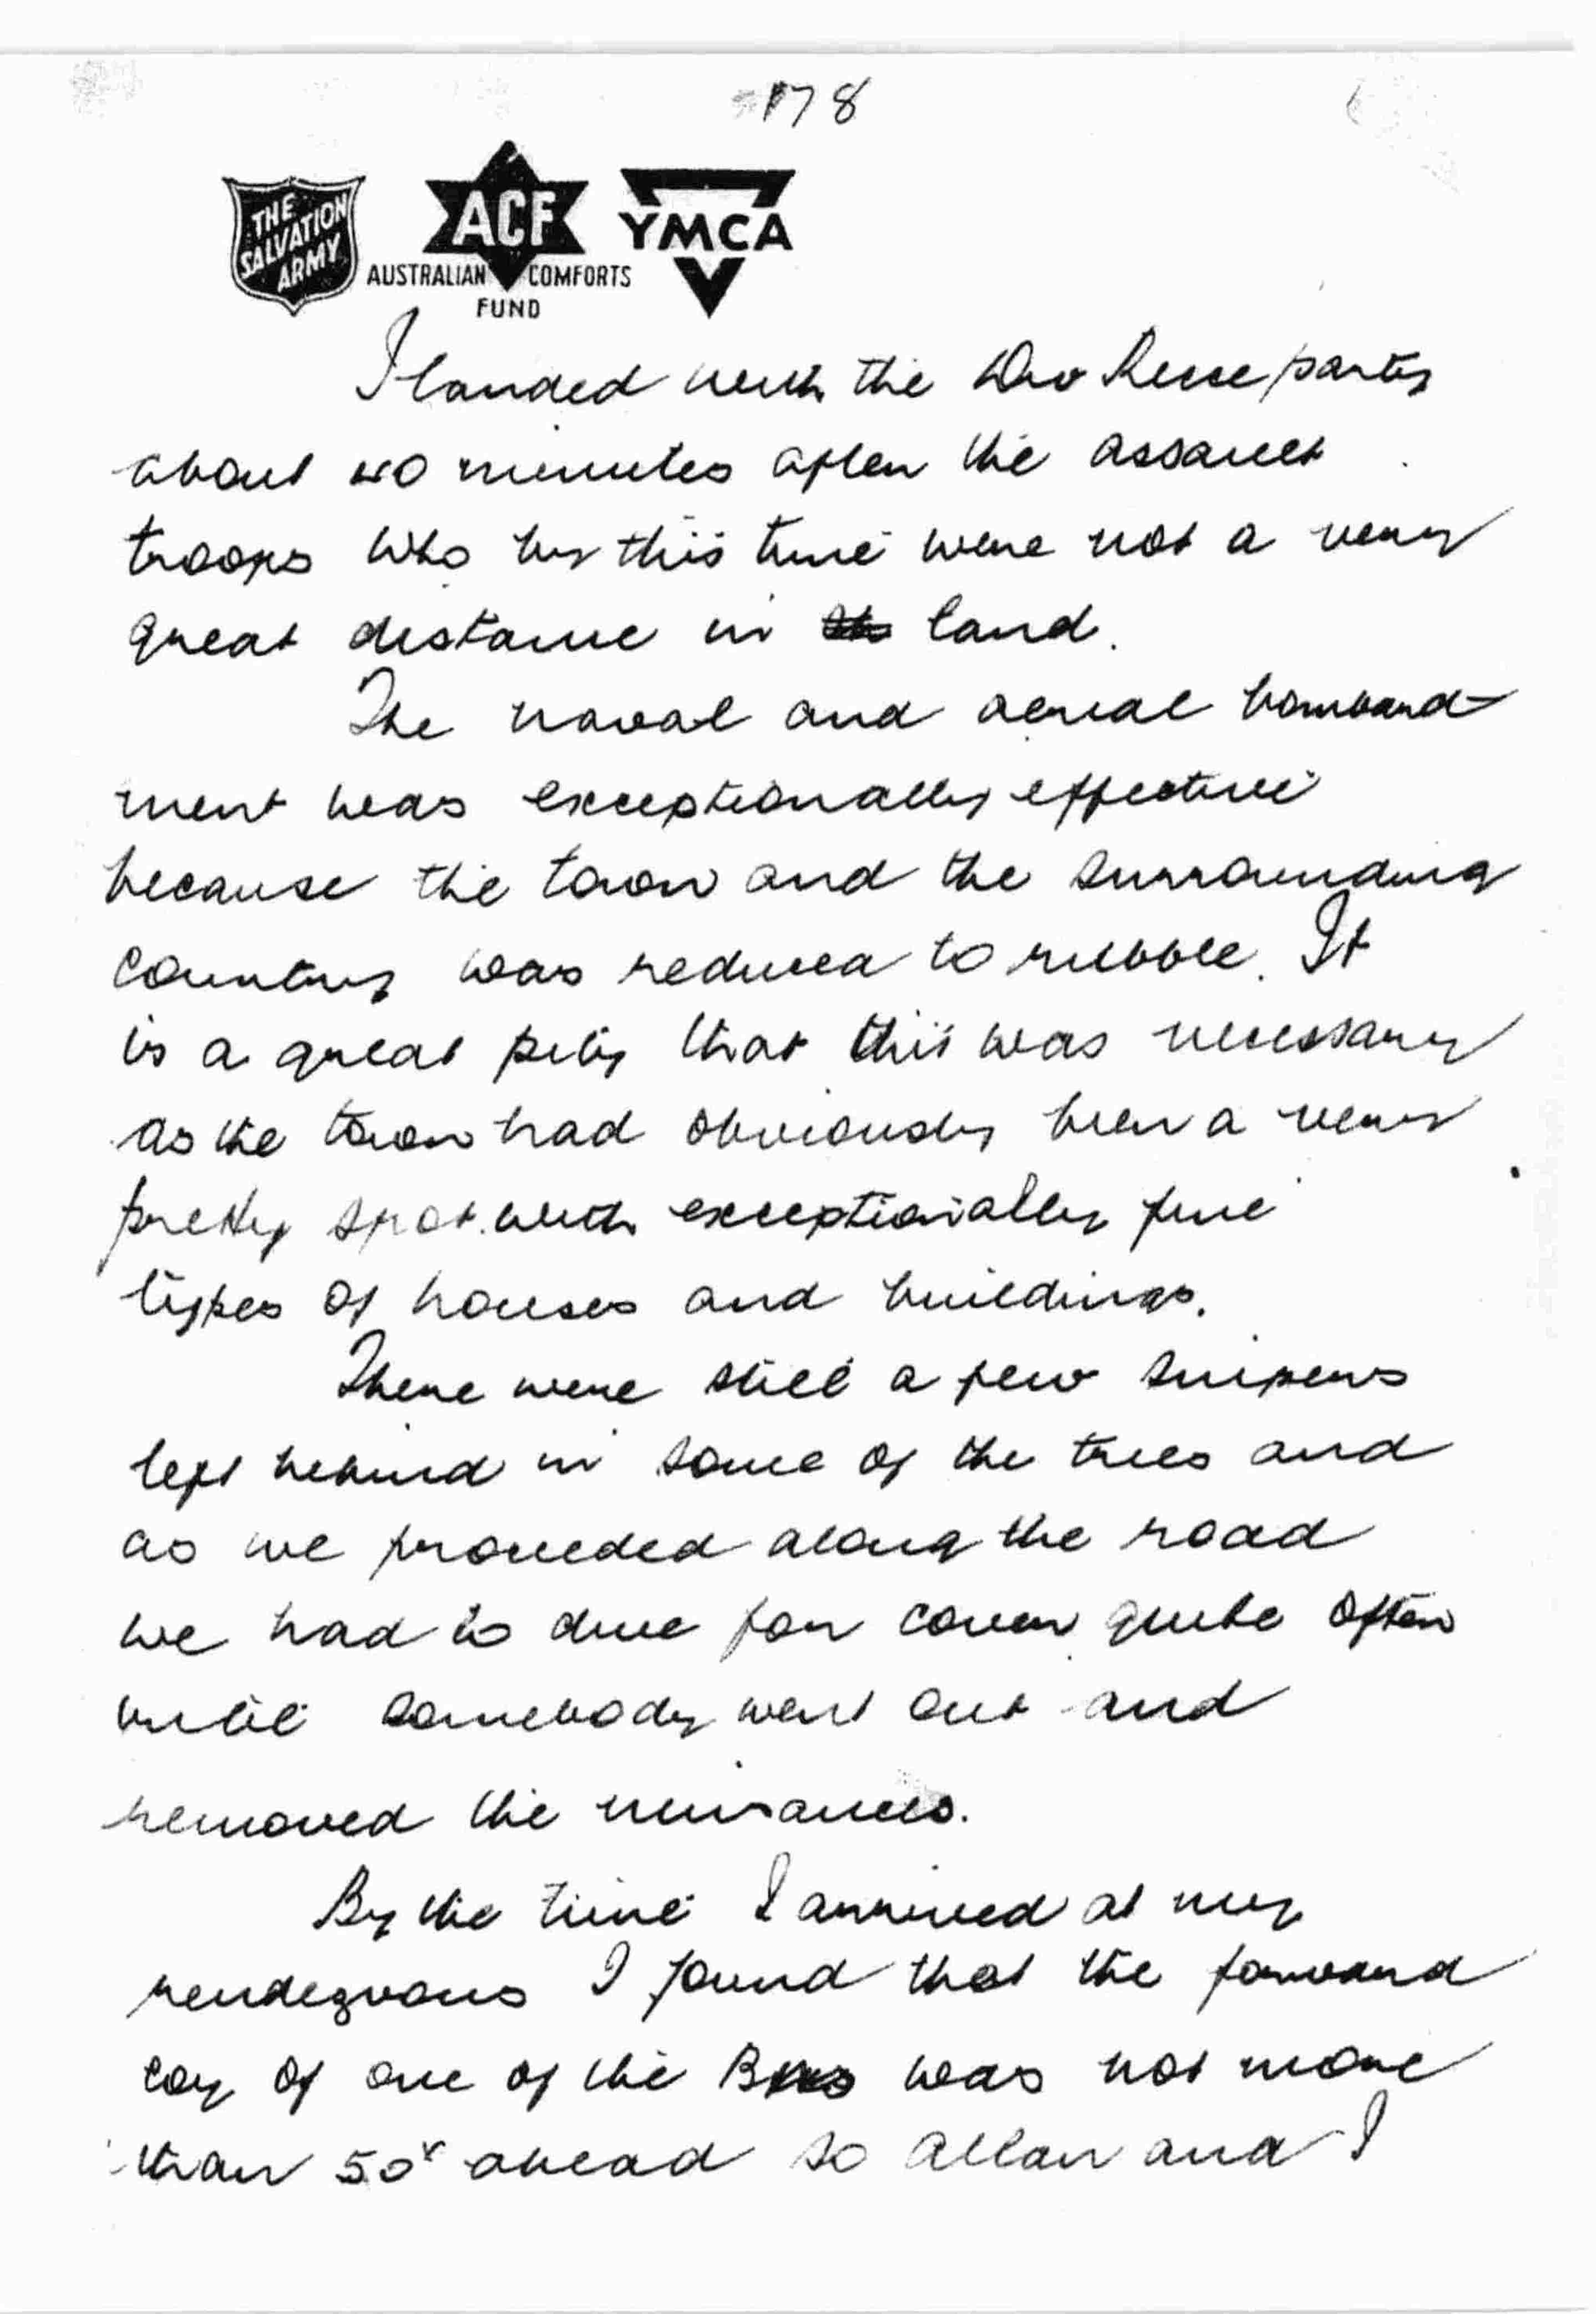 178
THE SALVATION ARMY
ACF
YMCA
AUSTRALIAN COMFORTS
FUND
I landed with the Div Recce party
about 40 minutes after the assault
troops who by this time were not a very
great distance in land.
The naval and aerial bombard-
ment was exceptionally effective
because the town and the surrounding
country was reduced to rubble. It
is a great pity that this was necessary
as the town had obviously been a very
pretty spot with exceptionally fine
types of houses and buildings.
There were still a few snipers
left behind in some of the trees and
as we proceeded along the road
we had to dive for cover quite often
until somebody went out and
removed the nuisances.
By the time I arrived at my
rendezvous I found that the forward
coy of one of the Bns was not more
than 50x ahead so Allan and I